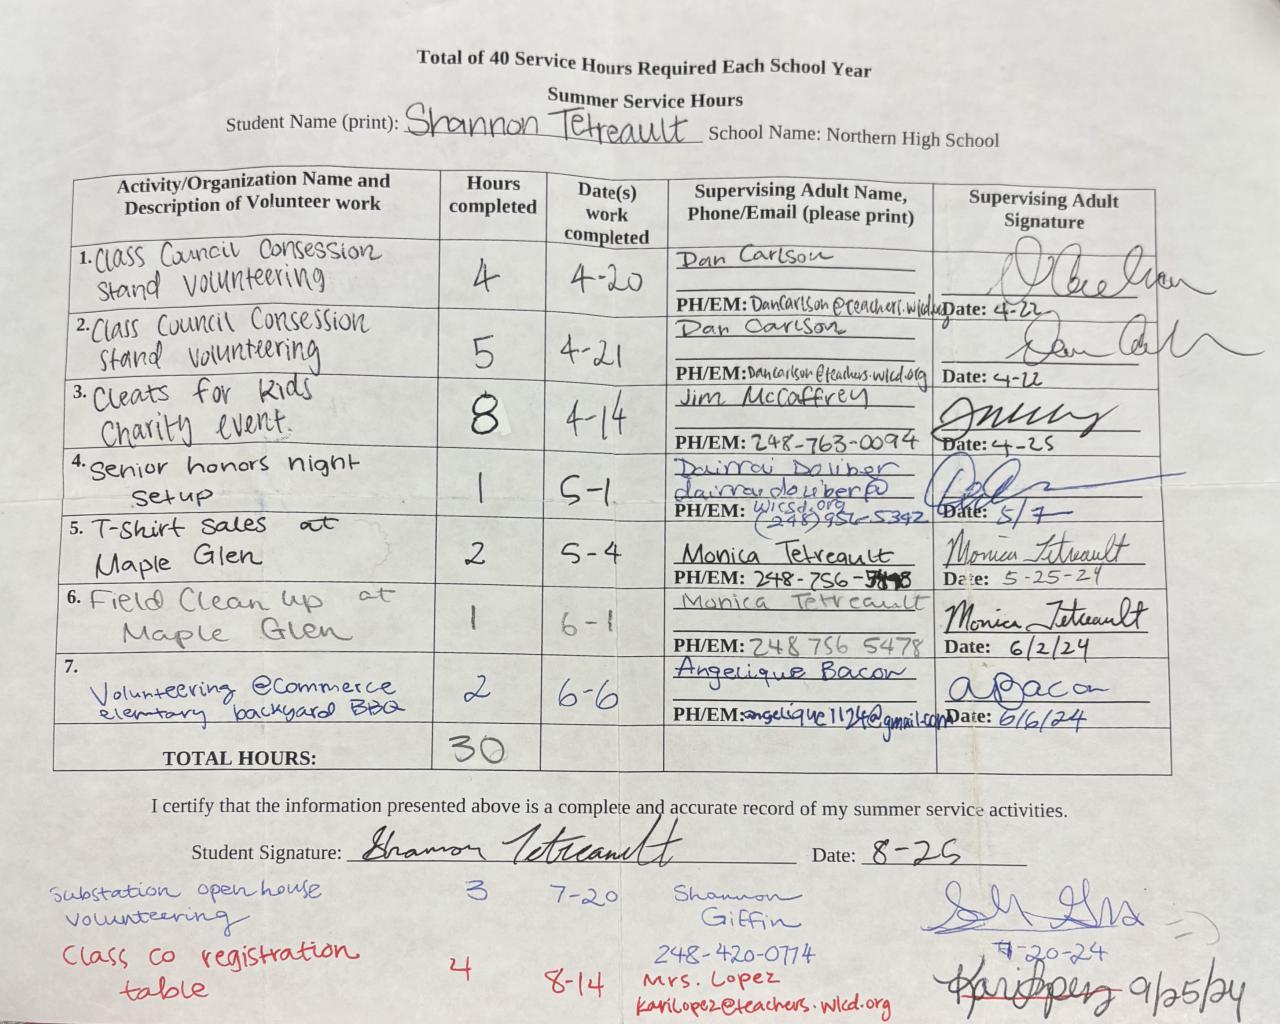 Total of 40 Service Hours Required Each School Year
Summer Service Hours
Student Name (print): Shannon Tetreault School Name: Northern High School
Activity/Organization Name and Description of Volunteer work
Hours completed
Date(s) work completed
Supervising Adult Name, Phone/Email (please print)
Supervising Adult Signature
1. Class Council Consession
Stand volunteering
4
4-20
Dan Carlson
PH/EM: DanCarlson@teachers.wlcd.org
Date: 4-22
2. Class Council Consession
Stand volunteering
5
4-21
Dan Carlson
PH/EM: Dancarlson@teachers.wlcd.org
Dan
Date: 4-22
3. Cleats for kids
Charity event.
8
4-14
Jim McCaffrey
PH/EM: 248-763-0094
Date: 4-25
4. Senior honors night
setup
1
5-1
Dairrai Doliber
dairraidoliber@
wlcsd.org
PH/EM: (248)956-5392
Date: 5/7
5. T-Shirt sales at
Maple Glen
2
5-4
Monica Tetreault
PH/EM: 248-756-
Monica Tetreault
Date: 5-25-24
6. Field Clean up at
Maple Glen
1
6-1
Monica Tetreault
PH/EM: 248 756 5478
Monica Tetreault
Date: 6/2/24
7.
Volunteering @Commerce
elemtary backyard BBQ
2
6-6
Angelique Bacon
PH/EM: angelique1124@gmail.com
ABacon
Date: 6/6/24
TOTAL HOURS: 30
I certify that the information presented above is a complete and accurate record of my summer service activities.
Student Signature: Shannon Tetreault Date: 8-25
Substation open house
volunteering
3
7-20
Shannon
Giffin
248-420-0774
7-20-24
Class co registration
table
4
8-14
Mrs. Lopez
karilopez@teachers.wlcd.org
Kari Lopez 9/25/24